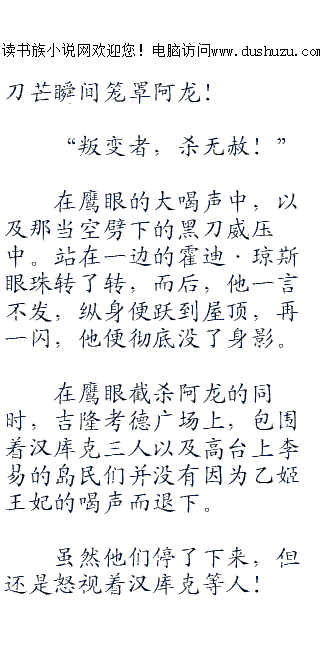 读书族小说网欢迎您！电脑访问www.dushuzu.com
刀芒瞬间笼罩阿龙！
“叛变者，杀无赦！”
在鹰眼的大喝声中，以
及那当空劈下的黑刀威压
中。站在一边的霍迪·琼斯
眼珠转了转，而后，他一言
不发，纵身便跃到屋顶，再
一闪，他便彻底没了身影。
在鹰眼截杀阿龙的同
时，吉隆考德广场上，包围
着汉库克三人以及高台上李
易的岛民们并没有因为乙姬
王妃的喝声而退下。
虽然他们停了下来，但
还是怒视着汉库克等人！